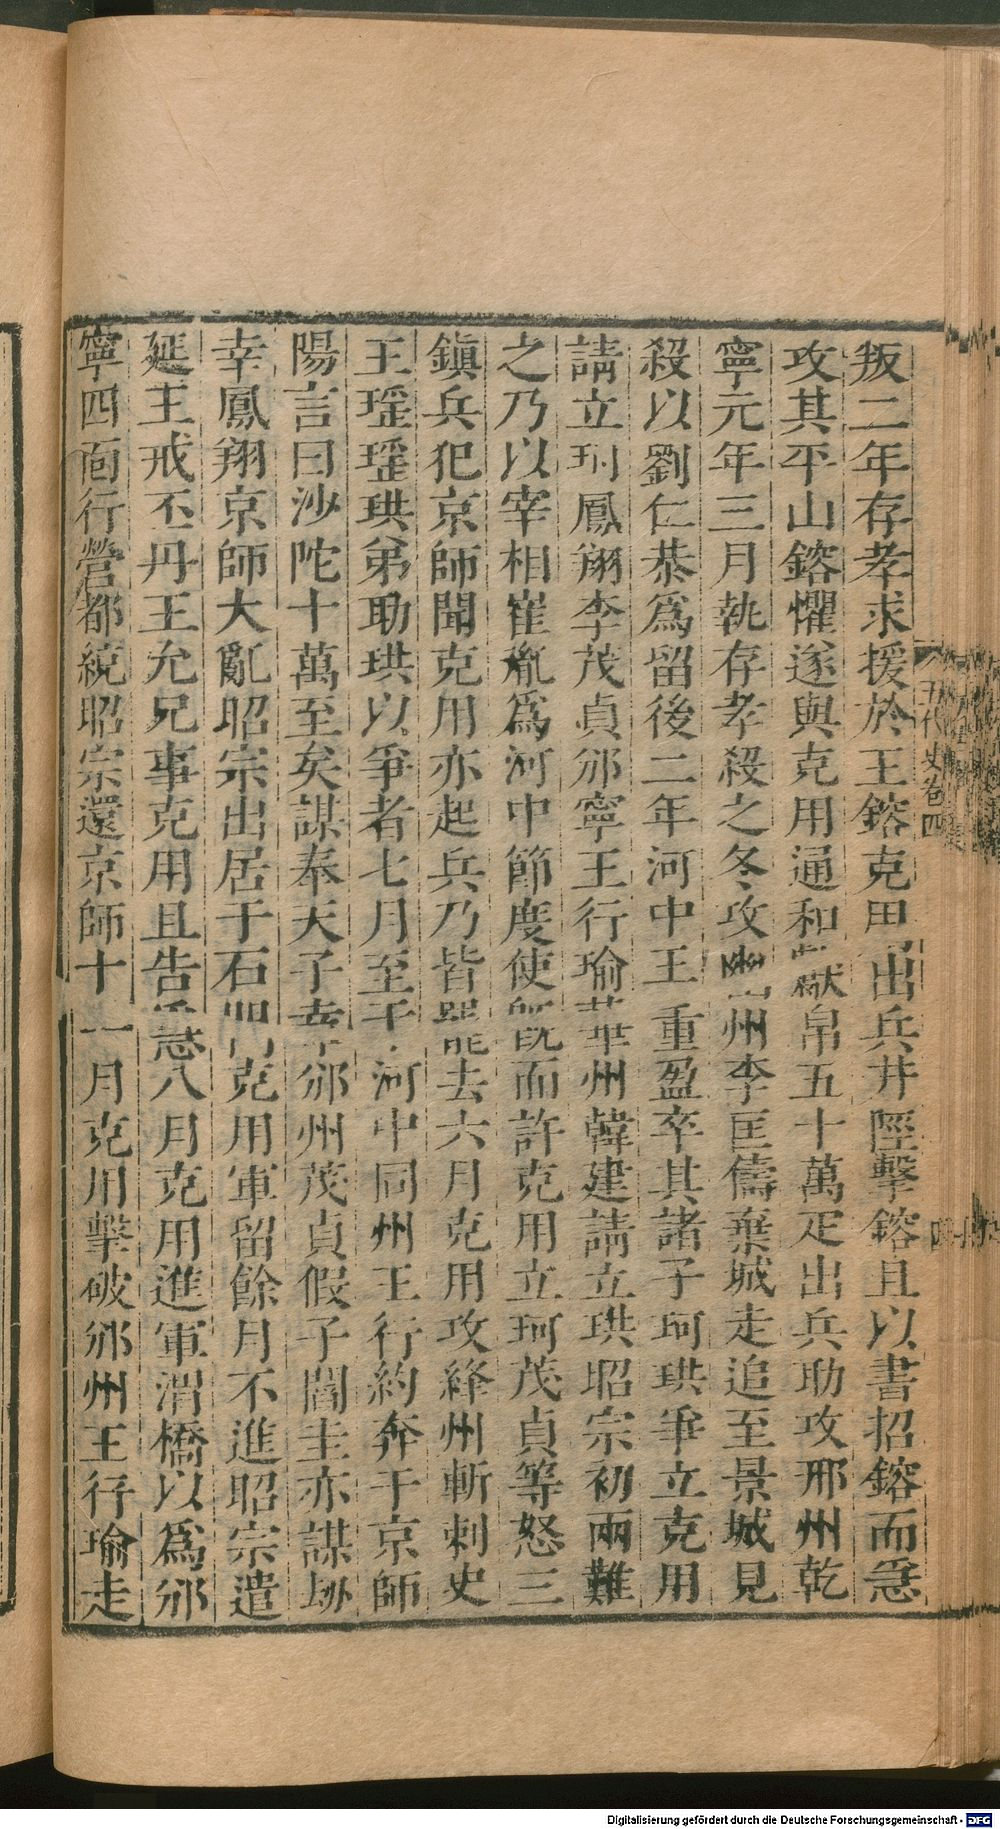 叛二年存孝求援於王鎔克用出兵井陘擊鎔且以書招鎔而急
攻其平山鎔懼遂與克用通和獻帛五十萬疋出兵助攻邢州乾
寧元年三月執存孝殺之冬攻幽州李匡儔棄城走追至景城見
殺以劉仁恭爲留後二年河中王重盈卒其諸子珂珙爭立克用
請立珂鳳翔李茂貞邠寧王行瑜華州韓建請立珙昭宗初兩難
之乃以宰相崔胤爲河中節度使既而許克用立珂茂貞等怒三
鎮兵犯京師聞克用亦起兵乃皆罷去六月克用攻絳州斬刺史
王瑶瑶珙弟助珙以爭者七月至于河中同州王行約奔于京師
陽言曰沙陀十萬至矣謀奉天子幸邠州茂貞假子閻圭亦謀刼
幸鳳翔京師大亂昭宗出居于石門克用軍留餘月不進昭宗遣
延王戒丕丹王允兄事克用且告急八月克用進軍渭橋以爲邠
寧四面行營都統昭宗還京師十一月克用擊破邠州王行瑜走
五代史卷四
四
Digitalisierung gefördert durch die Deutsche Forschungsgemeinschaft - DFG